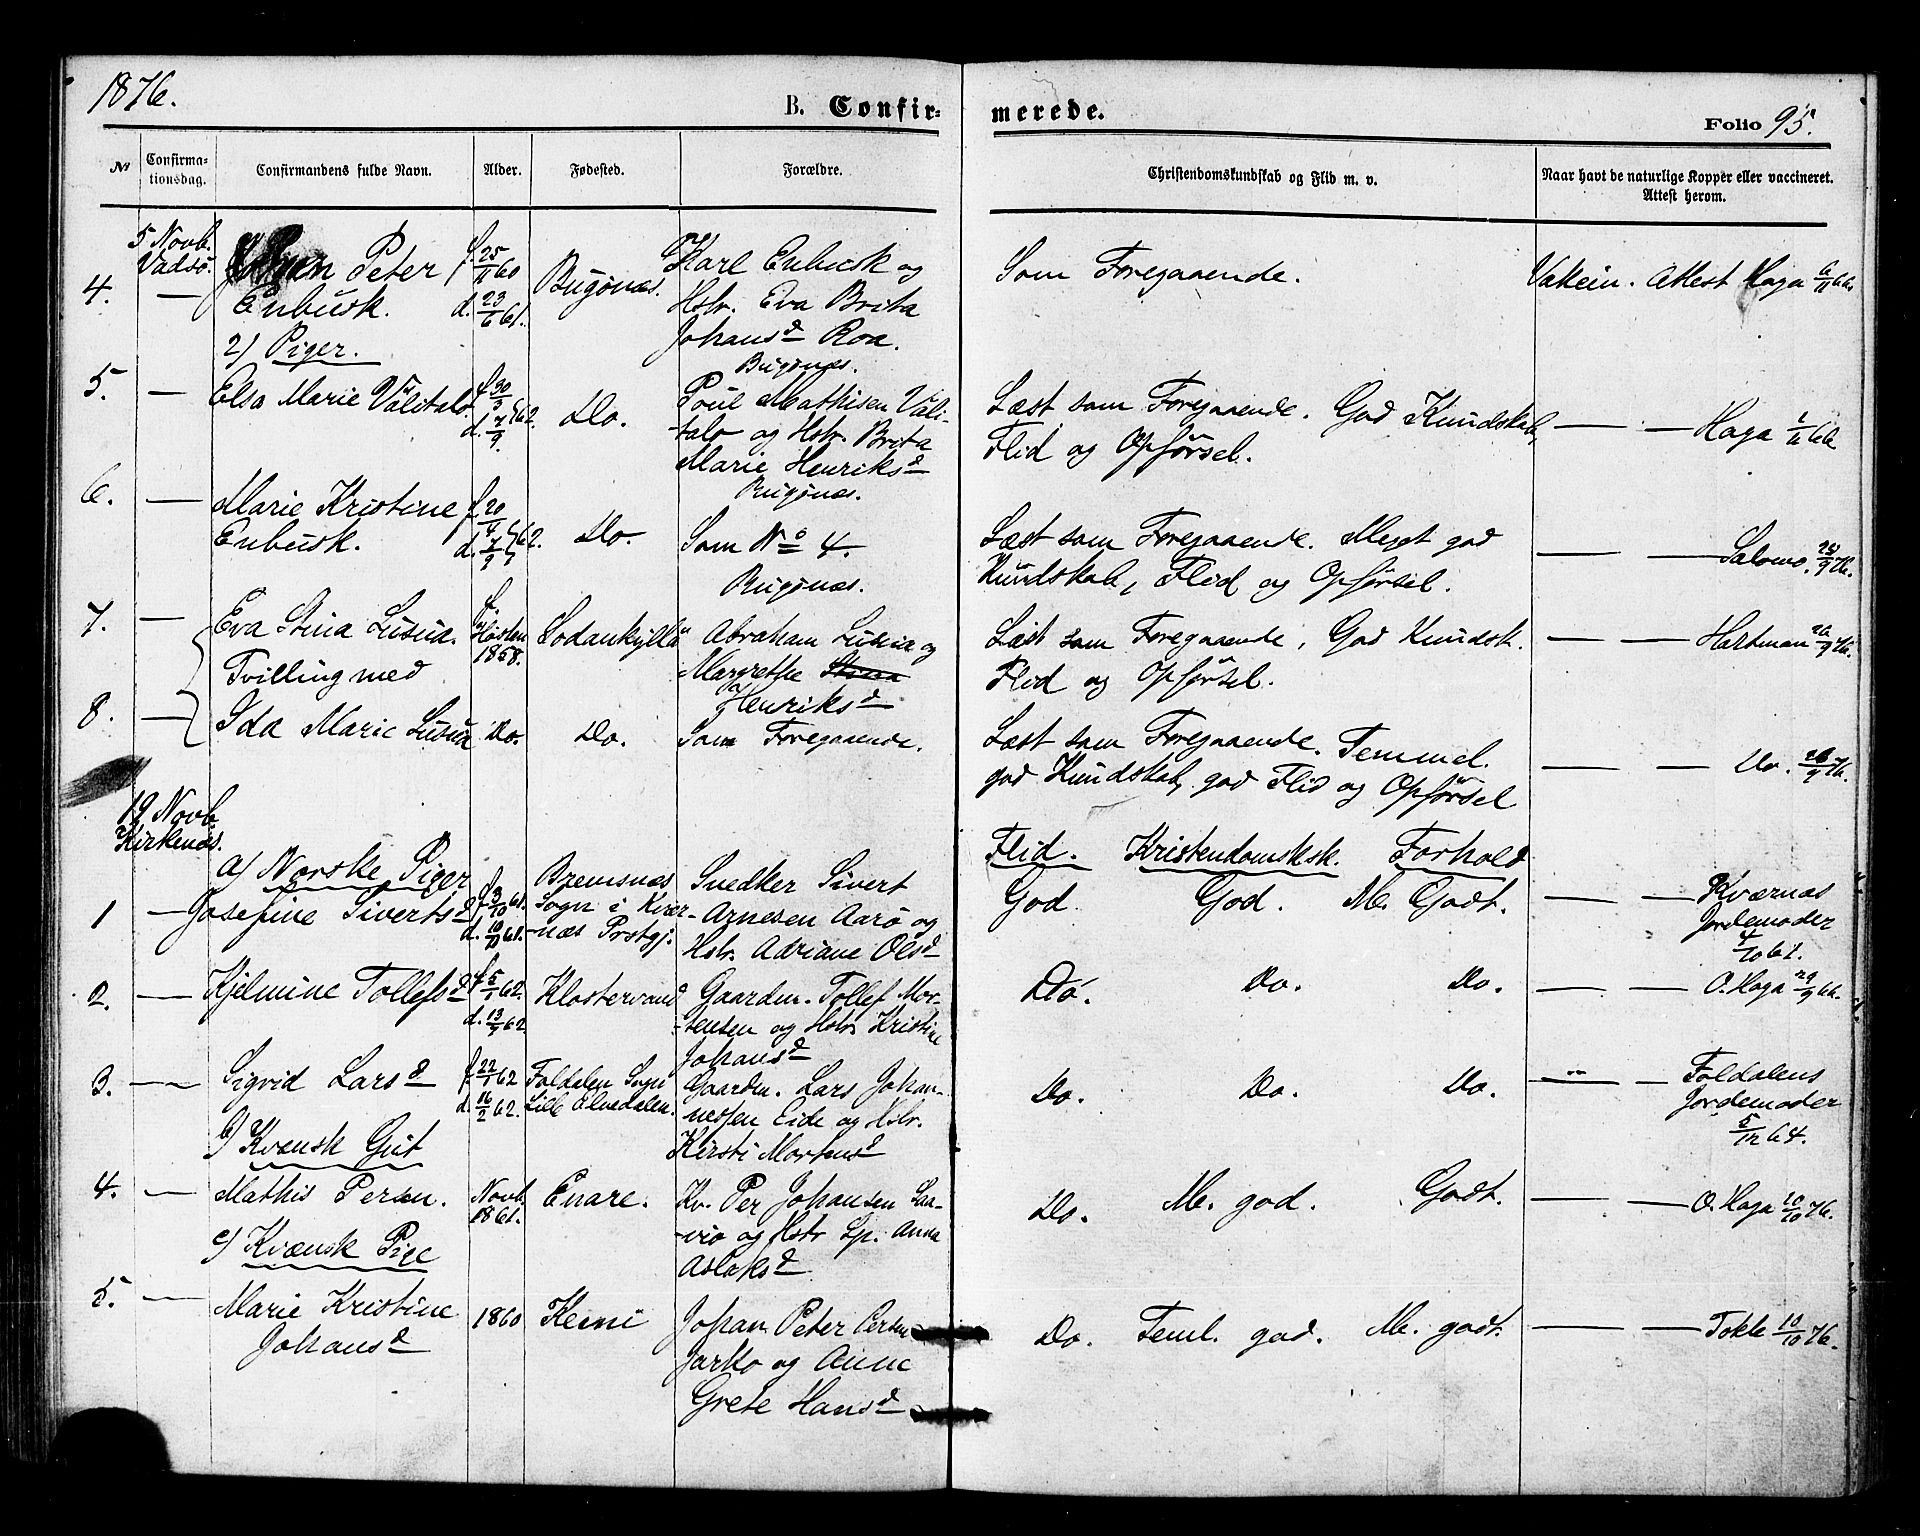 1876.
B. Confir-
merede.
Folio 95.
№
Confirma-
tionsdag.
Confirmandens fulde Navn.
Alder.
Fødested.
Forældre.
Christendomskundskab og Flid m. v.
Naar havt de naturlige Kopper eller vaccineret.
Attest herom.
5 Novb.
Vadsø.
4. — Peter
Enbusk.
f. 25/11 60
d. 23/6 61.
Bugønæs.
Karl Enbusk og
Hstr. Eva Brita
Johansd Roa.
Bugønæs.
Som Foregaaende.
Vakcin. Attest Haga 6/11 66.
2) Piger.
5. — Elsa Marie Välitalo
f. 30/3
d. 7/9 62.
Do.
Poul Mathisen Väli-
-talo og Hstr. Brita
Marie Henriksd
Bugønæs.
Læst som Foregaaende. God Kundskab,
Flid og Opførsel.
— — Haga 1/11 66
6. — Marie Kristine
Enbusk.
f. 20/4
d. 7/9 62.
Do.
Som No 4.
Bugønæs.
Læst som Foregaaende. Meget god
Kundskab, Flid og Opførsel.
— — Salomo. 25/9 76.
7. — Eva Stina Lusua.
Tvilling med
f. i
Høsten
1858.
Sodankylä
Abraham Lusua og
Margrethe Stina
Henriksd
Læst som Foregaaende, God Kundsk.
Flid og Opførsel.
— — Hartman 26/9 76.
8. — Ida Marie Lusua
Do.
Do.
Som Foregaaende.
Læst som Foregaaende. Temmel.
god Kundskab, god Flid og Opførsel
— — Do. 26/9 76.
19 Novb.
Kirkenæs.
a) Norske Piger
Flid. Kristendomsksk. Forhold
1 — Josefine Sivertsd
f. 3/10 61.
d. 10/11 61.
Bremsnæs
Sogn i Kvær-
-næs Prstgj.
Snedker Sivert
Arnesen Aarø og
Hstr. Adriane Olsd
God God. M. Godt.
— — Kværnæs
Jordemoder
4/10 67.
2. — Kjelmine Tollefsd
f. 5/1 62.
d. 13/7 62
Klostervand
Gaardm. Tollef Mor-
-tensen og Hstr. Kristine
Johansd
Do. Do. Do.
— — O. Haga 29/9 66.
3. — Sigrid Larsd
f. 22/1 62
d. 16/2 62.
Foldalen Sogn
Lille Elvedalen.
Gaardm. Lars Johan-
nessen Eide og Hstr.
Kirsti Mortensd
Do. Do. Do.
— — Foldalens
Jordemoder
5/12 64.
b) Kvænsk Gut
4. — Mathis Persen.
Novb.
1861.
Enare.
Kv. Per Johansen Saa-
-vio og Hstr Lp. Anna
Aslaksd
Do. M. god. Godt.
— — O. Haga 20/10 76.
c) Kvænsk Pige
5. — Marie Kristine
Johansd
1860
Kemi
Johan Peter Persen
Jarko og Anne
Grete Hansd
Do. Teml. god. M. godt.
— — Tokle 10/10 76.